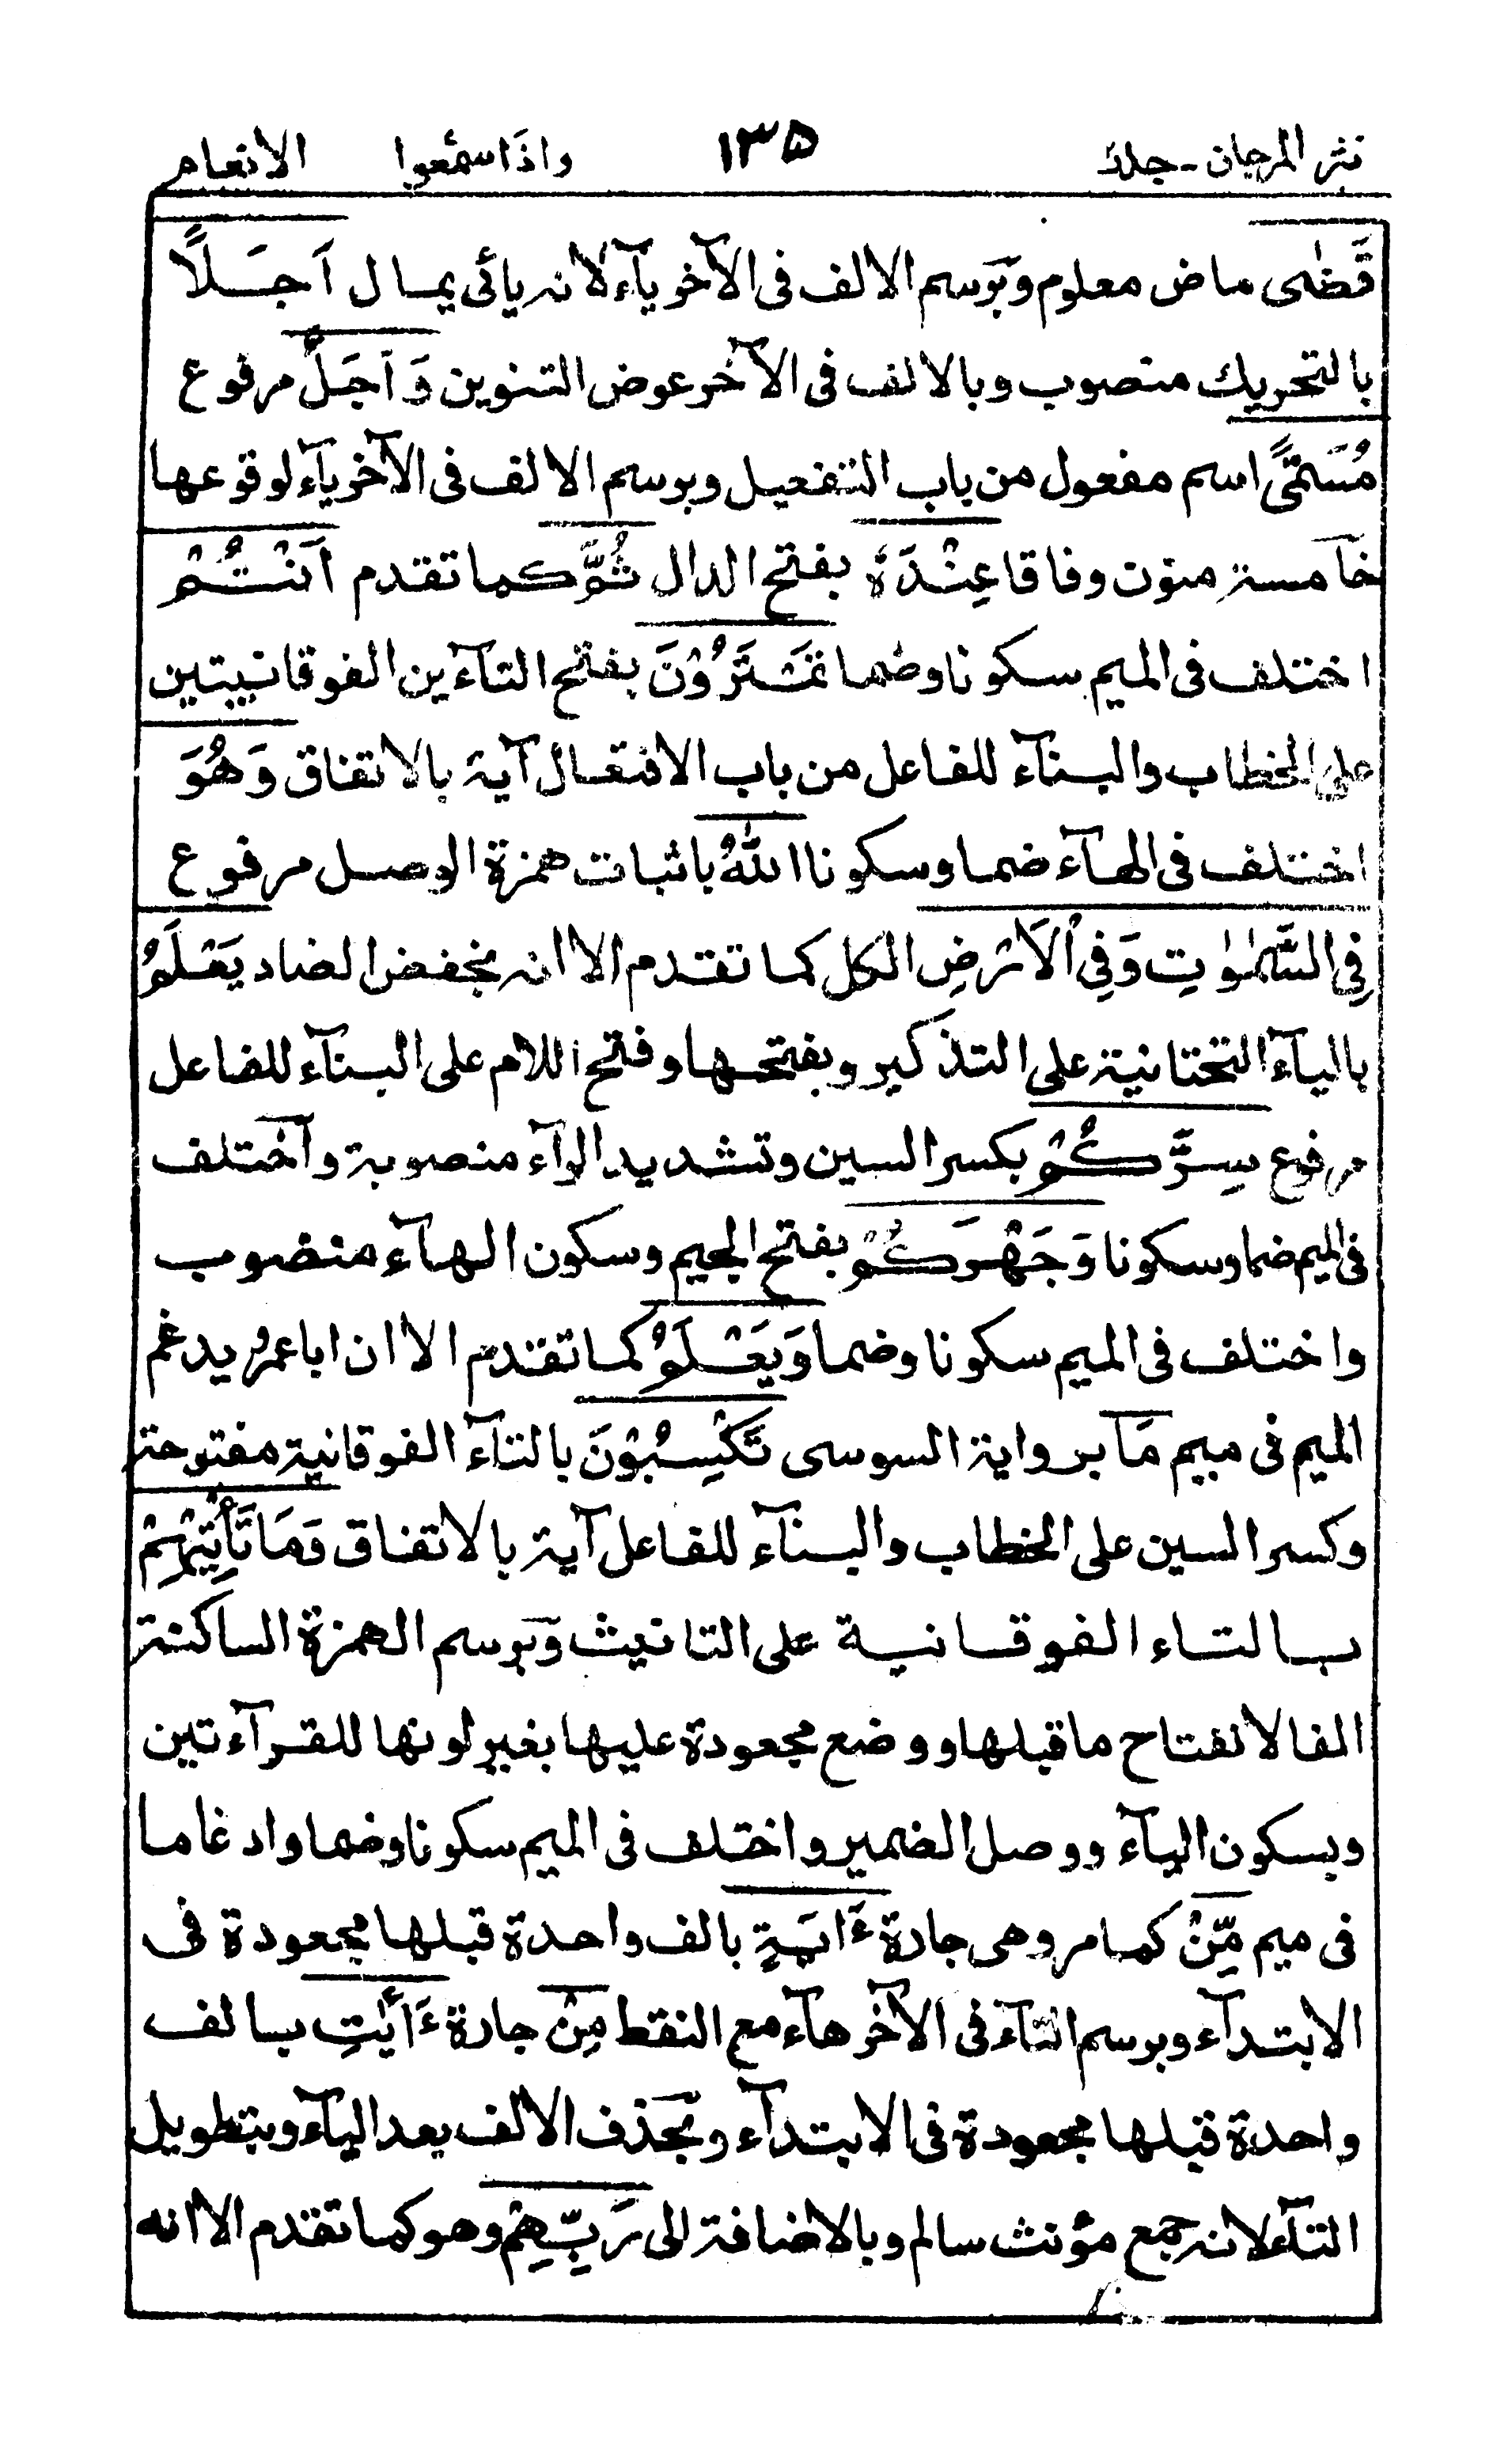 نثر المرجان - جلد ١٣٥ واذا سمعوا الانعام
قَضٰى ماض معلوم وبرسم الالف فى الآخر يآء لانه يائى يمال اَجَلًا
بالتحريك منصوب وبالالف فى الآخر عوض التنوين وَاَجَلٌ مرفوع
مُسَمًّى اسم مفعول من باب التفعيل وبرسم الالف فى الآخر يآء لوقوعها
خامسة منون وفاقا عِنْدَهٗ بفتح الدال ثُمَّ كما تقدم اَنْتُمْ
اختلف فى الميم سكونا وضما تَمْتَرُوْنَ بفتح التآءين الفوقانيتين
على الخطاب والبنآء للفاعل من باب الافتعال آية بالاتفاق وَهُوَ
اختلف فى الهآء ضما وسكونا اللّٰهُ باثبات همزة الوصل مرفوع
فِى السَّمٰوٰتِ وَفِى الْاَرْضِ الكل كما تقدم الا انه بخفض الضاد يَعْلَمُ
باليآء التحتانية على التذكير وبفتحها وفتح اللام على البنآء للفاعل
مرفوع سِرَّكُمْ بكسر السين وتشديد الرآء منصوبة واختلف
فى الميم ضما وسكونا وَجَهْرَكُمْ بفتح الجيم وسكون الهآء منصوب
واختلف فى الميم سكونا وضما وَيَعْلَمُ كما تقدم الا ان ابا عمرو يدغم
الميم فى ميم مَا برواية السوسى تَكْسِبُوْنَ بالتآء الفوقانية مفتوحة
وكسر السين على الخطاب والبنآء للفاعل آية بالاتفاق وَمَا تَأْتِيْهِمْ
بالتاء الفوقانية على التانيث وبرسم الهمزة الساكنة
الفا لانفتاح ما قبلها ووضع مجعودة عليها بغير لونها للقرآءتين
وبسكون اليآء ووصل الضمير واختلف فى الميم سكونا وضما وادغاما
فى ميم مِّنْ كما مر وهى جارة ءَايَةٍ بالف واحدة قبلها مجعودة فى
الابتدآء وبرسم التآء فى الآخر هآء مع النقط مِنْ جارة ءَايٰتِ بالف
واحدة قبلها مجعودة فى الابتدآء وبحذف الالف بعد اليآء وبتطويل
التآء لانه جمع مؤنث سالم وبالاضافة الى رَبِّهِمْ وهو كما تقدم الا انه